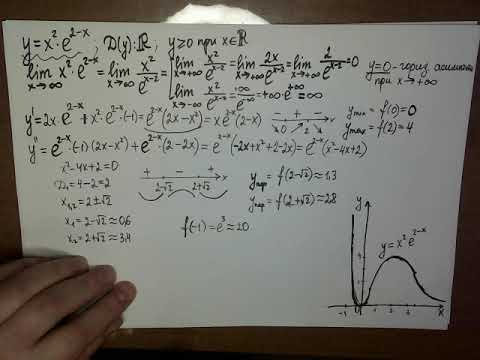 y=x²·e^(2-x), D(y): ℝ; y≥0 при x∈ℝ
lim x→∞ x²·e^(2-x) = lim x→∞ x²/e^(x-2) = [ lim x→+∞ x²/e^(x-2) = lim x→+∞ 2x/e^(x-2) = lim x→+∞ 2/e^(x-2) = 0
lim x→-∞ x²/e^(x-2) = ∞/e^(-∞) = +∞·e^(+∞) = ∞
y=0 - гориз. асимптота
при x→+∞
y'=2x·e^(2-x)+x²·e^(2-x)·(-1)=e^(2-x)(2x-x²)=x·e^(2-x)(2-x)
- + - x
0 2
y min = f(0)=0
y max = f(2)=4
y''=e^(2-x)·(-1)(2x-x²)+e^(2-x)·(2-2x)=e^(2-x)(-2x+x²+2-2x)=e^(2-x)(x²-4x+2)
x²-4x+2=0
D₁=4-2=2
x₁,₂=2±√2
x₁=2-√2≈0,6
x₂=2+√2≈3,4
+ - + x
2-√2 2+√2
y пер = f(2-√2)≈1,3
y пер = f(2+√2)≈2,8
f(-1)=e³≈20
y
y=x²e^(2-x)
4
-1 1 2 3 x